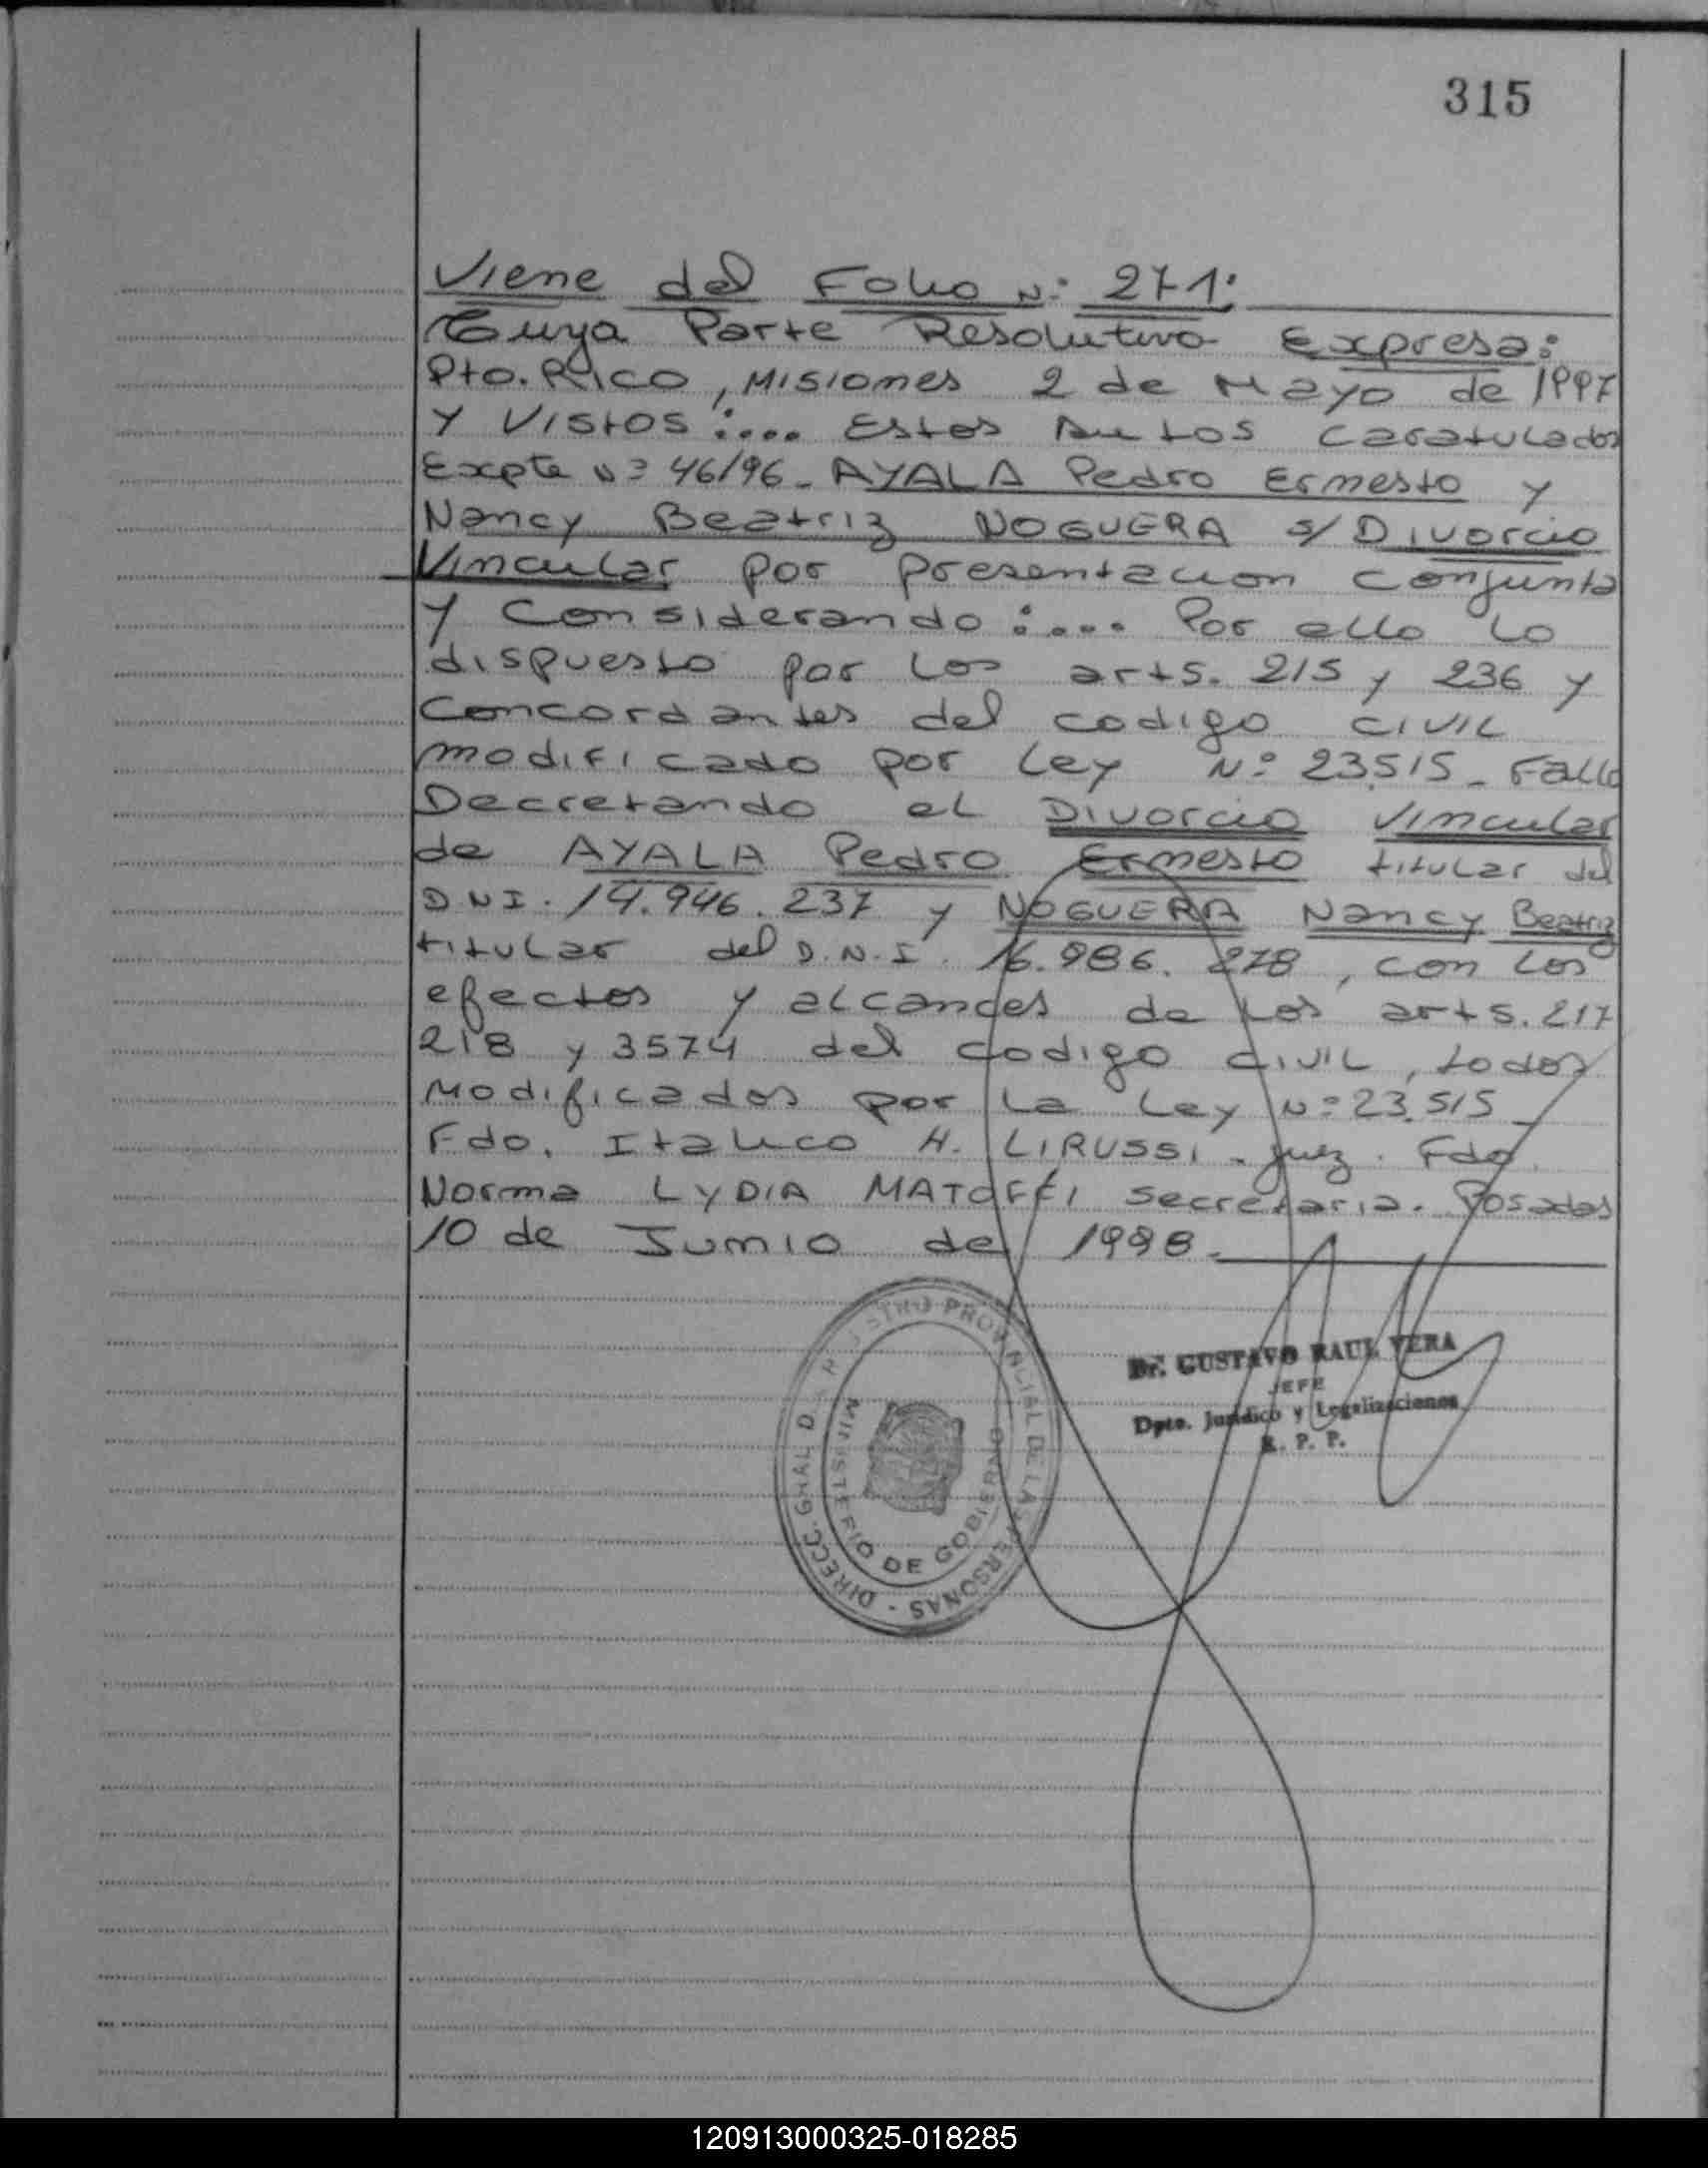 315
Viene del Folio Nº 271:
Cuya Parte Resolutiva Expresa:
Pto. Rico, Misiones 2 de Mayo de 1997
Y Vistos :.... Estos Autos Caratulados
Expte Nº 46/96 - AYALA Pedro Ernesto y
Nancy Beatriz NOGUERA s/ Divorcio
Vincular por presentacion conjunta
Y Considerando :.... Por ello lo
dispuesto por los arts. 215 y 236 y
Concordantes del codigo civil
modificado por Ley Nº 23515 - Fallo
Decretando el Divorcio Vincular
de AYALA Pedro Ernesto titular del
DNI. 14.946.237 y NOGUERA Nancy Beatriz
titular del D.N.I. 16.986.278, con los
efectos y alcances de los arts. 217
218 y 3574 del codigo civil, todos
Modificados por la Ley Nº 23.515 -
Fdo. Italico H. LIRUSSI - juez. Fdo.
Norma LYDIA MATOFFI secretaria. Posadas
10 de Junio de 1998 -
Dr. GUSTAVO RAUL VERA
JEFE
Dpto. Jurídico y Legalizaciones
R. P. P.
PROVINCIAL DE LAS PERSONAS - DIRECC. GRAL D
MINISTERIO DE GOBIERNO
120913000325-018285